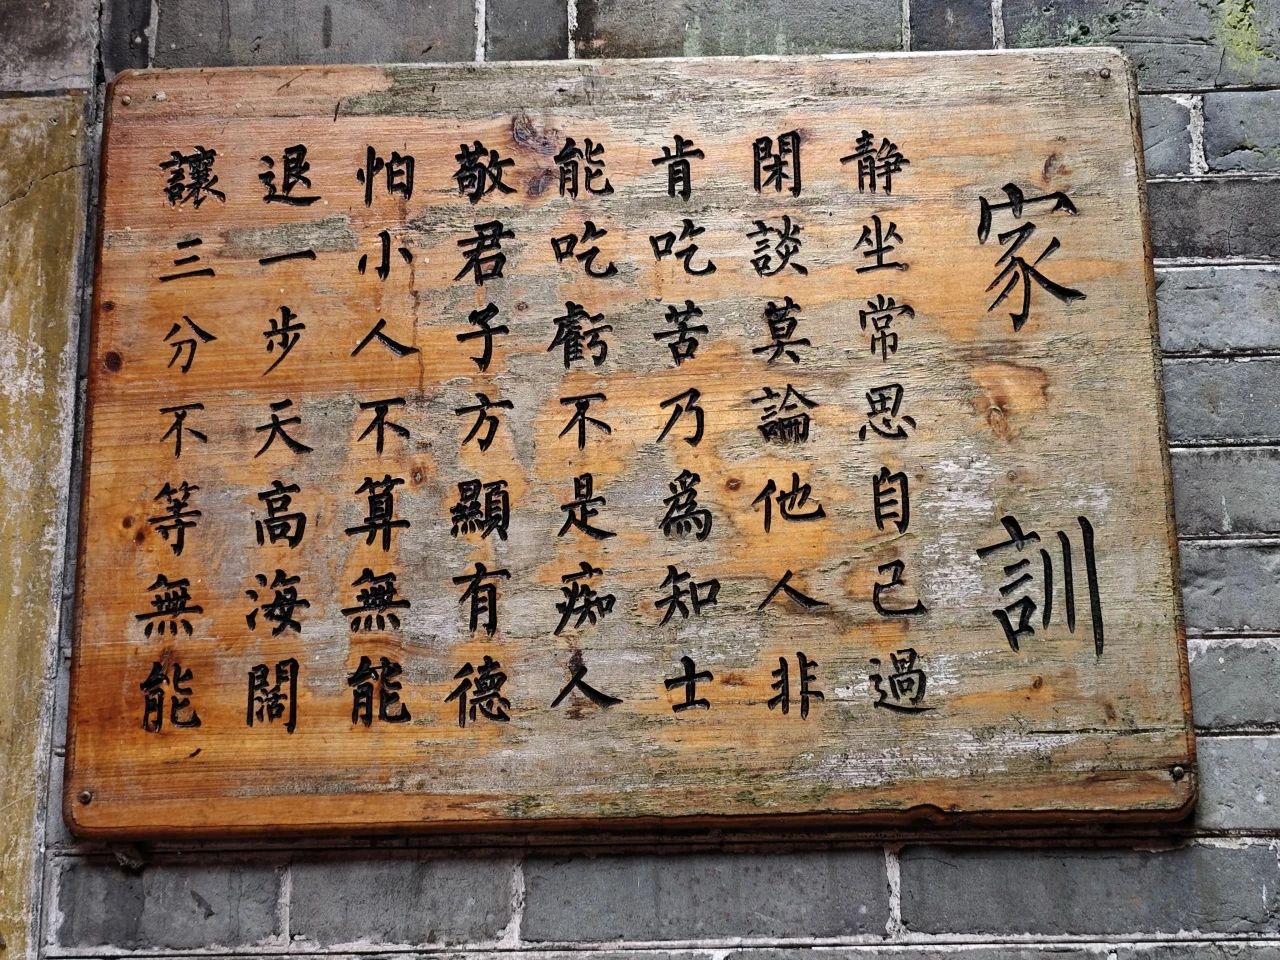 家訓
静坐常思自己過
閑談莫論他人非
肯吃苦乃爲知士
能吃虧不是痴人
敬君子方顯有德
怕小人不算無能
退一步天高海闊
讓三分不等無能